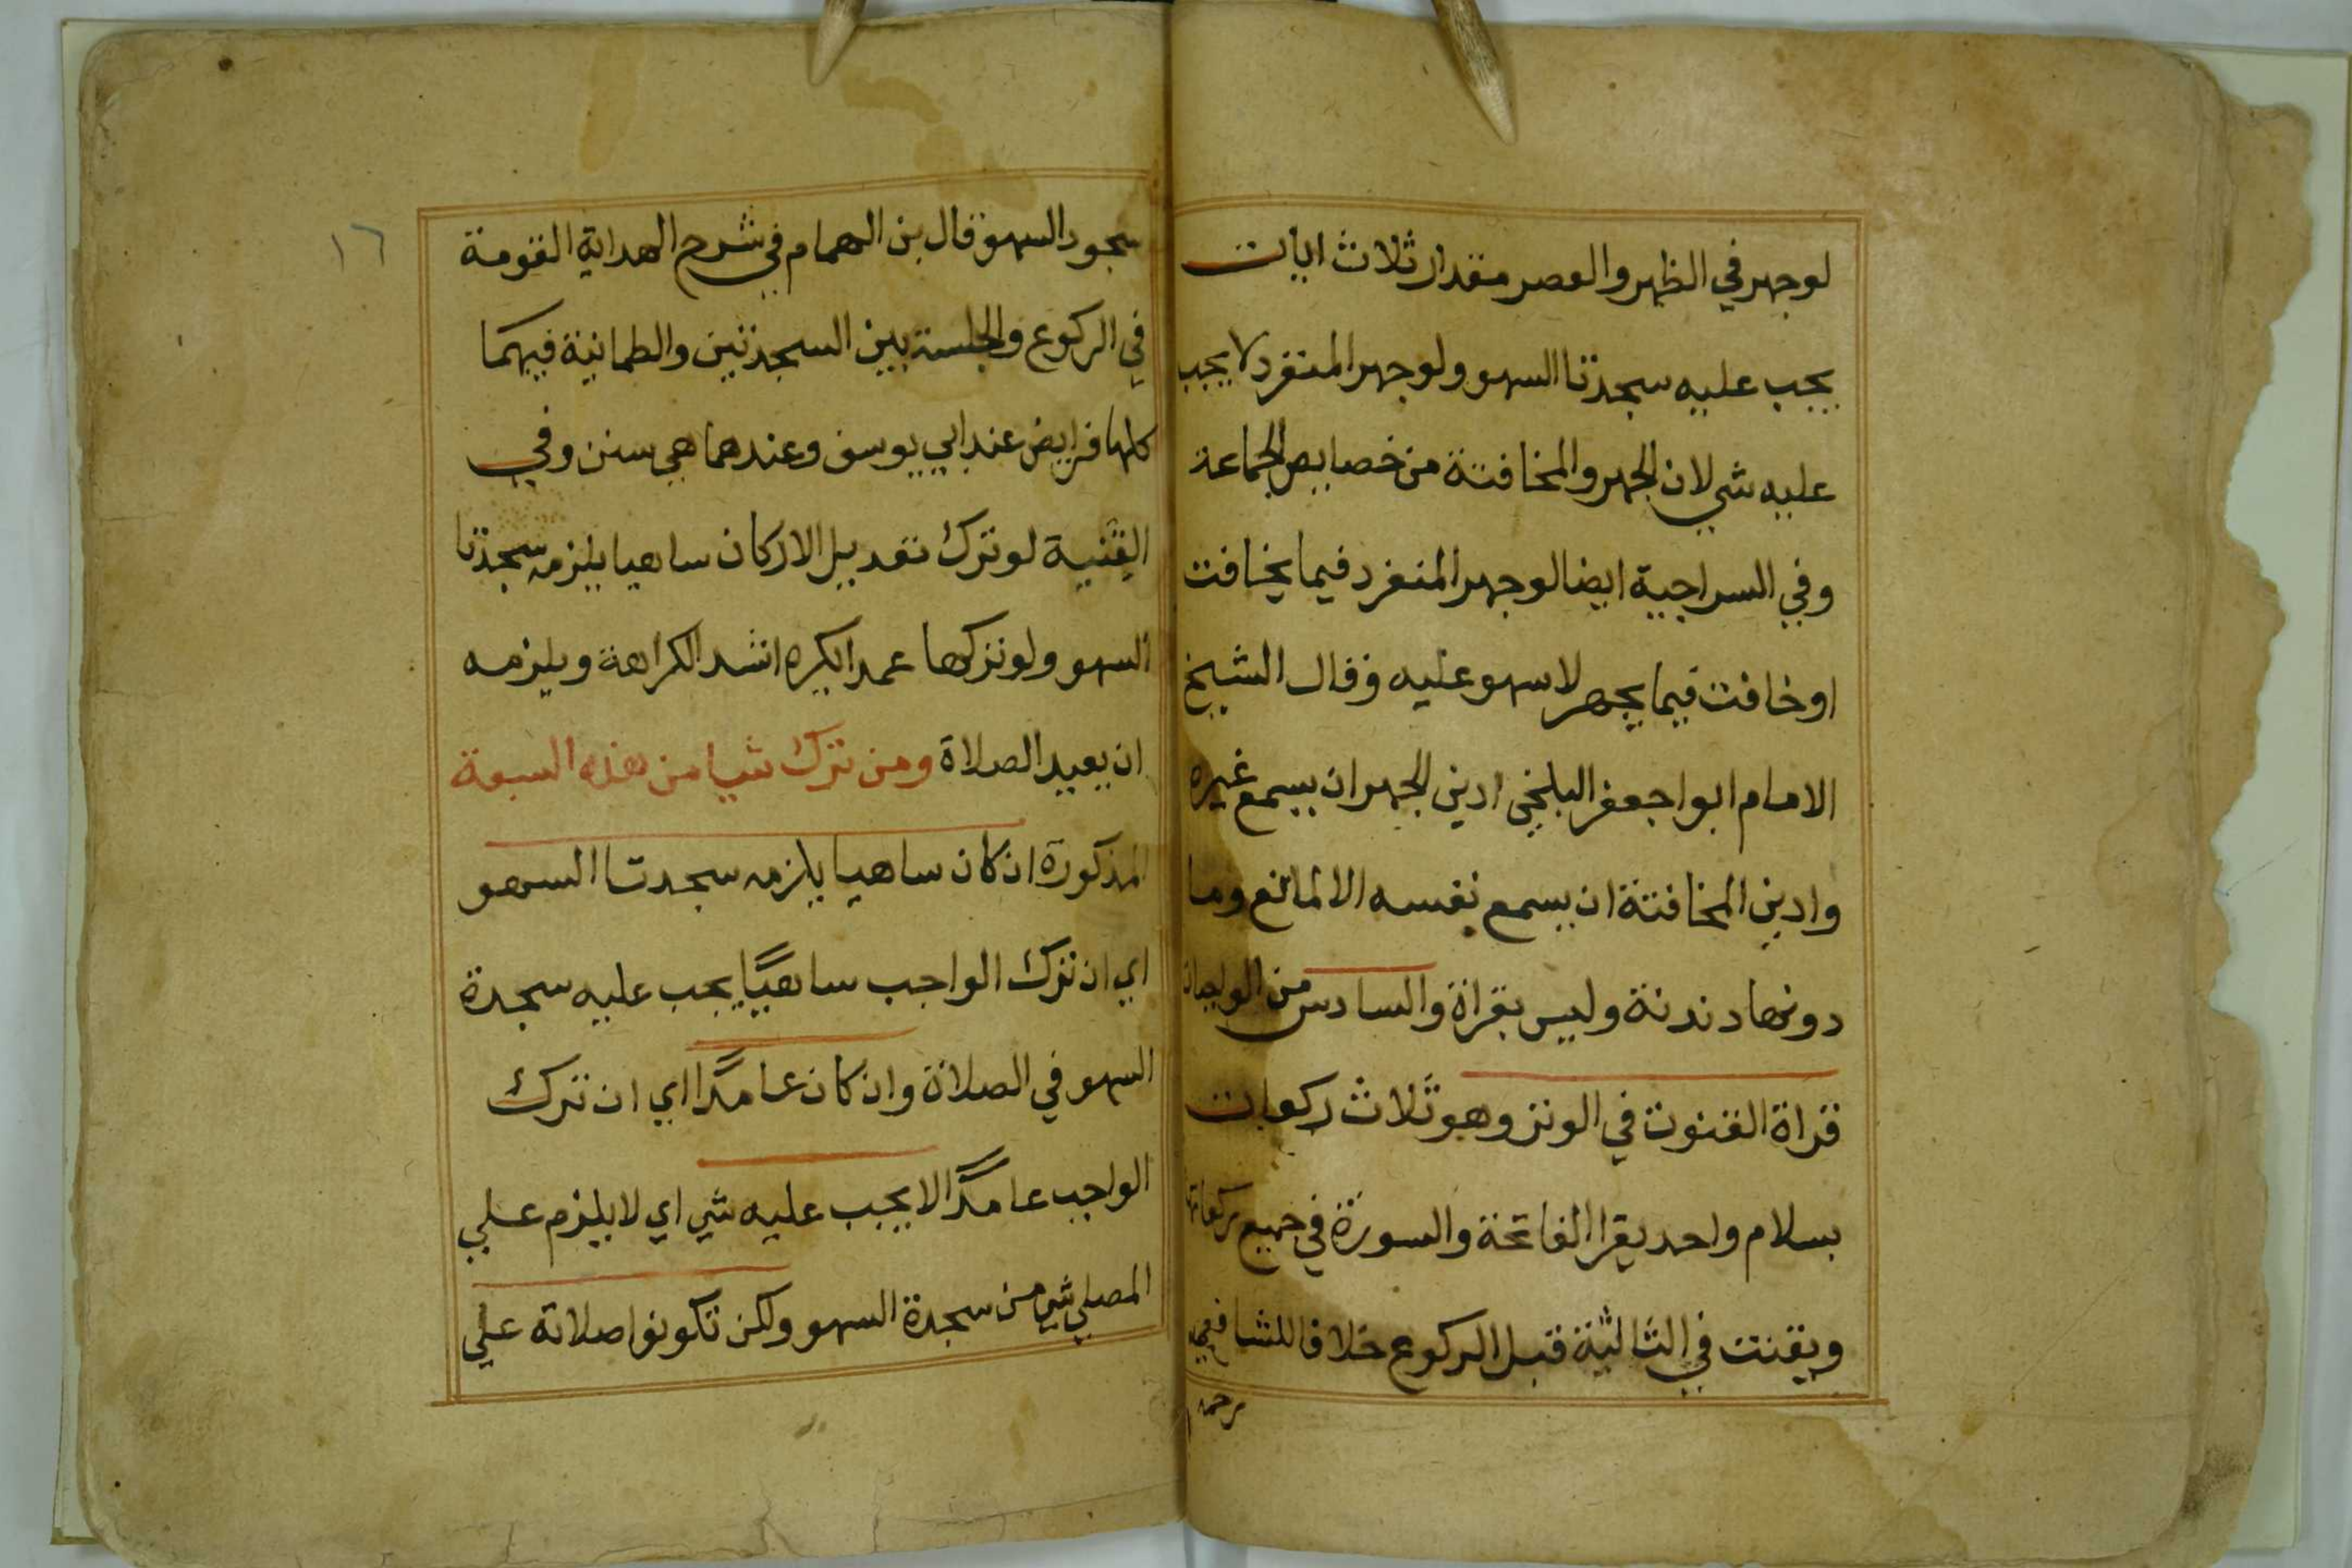 لوجهر في الظهر والعصر مقدار ثلاث ايات
يجب عليه سجدتا السهو ولوجهر المنفرد لا يجب
عليه شي لان الجهر والمخافتة من خصايص الجماعة
وفي السراجية ايضا لوجهر المنفرد فيما يخافت
او خافت فيما يجهر لا سهو عليه وقال الشيخ
الامام ابوا جعفر البلخي ادني الجهر ان يسمع غيره
وادني المخافتة ان يسمع نفسه الا لمانع وما
دونها دندنة وليس بقراة والسادس من الواجبات
قراة القنوت في الوتر وهو ثلاث ركعات
بسلام واحد يقرا الفاتحة والسورة في جميع ركعاته
ويقنت في الثالثة قبل الركوع خلافا للشافعي
رحمه
١٦
سجود السهو قال بن الهمام في شرح الهداية القومة
في الركوع والجلسة بين السجدتين والطمانية فيهما
كلها فرايض عند ابي يوسف وعندهما هي سنن وفي
القنية لو ترك تعديل الاركان ساهيا يلزمه سجدتا
السهو ولو تركها عمدا يكره اشد الكراهة ويلزمه
ان يعيد الصلاة ومن ترك شيا من هذه السبعة
المذكورة ان كان ساهيا يلزمه سجدتا السهو
اي ان ترك الواجب ساهيًا يجب عليه سجدة
السهو في الصلاة وان كان عامدًا اي ان ترك
الواجب عامدًا لا يجب عليه شي اي لا يلزم علي
المصلي شي من سجدة السهو ولكن تكونوا صلاته علي